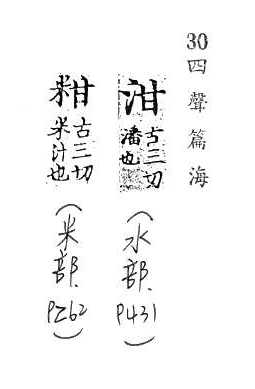 30四聲篇海
泔古三切
潘也
(水部. P431)
粓古三切
米汁也
(米部. P262)